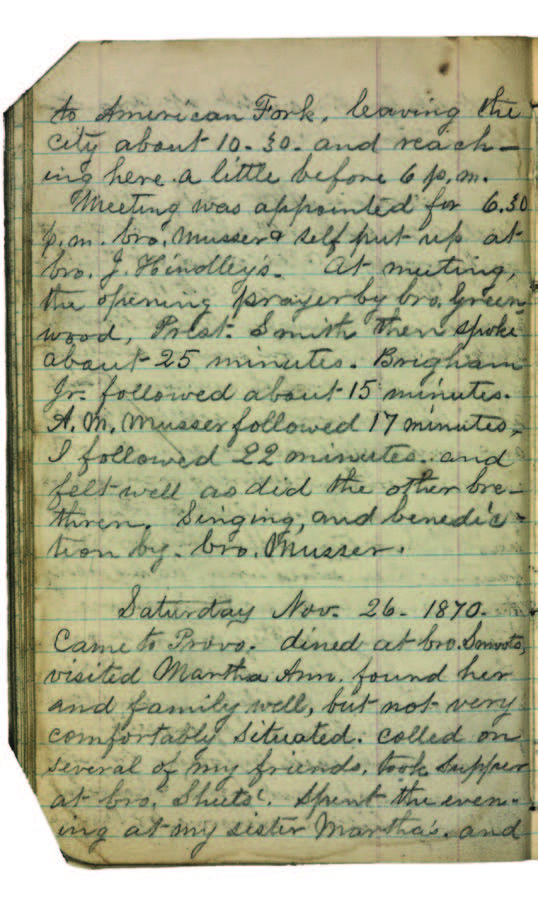 to American Fork, leaving the
city about 10.30. and reach-
ing here a little before 6 p.m.
Meeting was appointed for 6.30
p.m. bro. Musser & self put up at
bro. J. Hindley's. At meeting,
the opening prayer by bro. Green
wood, Prest. Smith then spoke
about 25 minutes. Brigham
Jr. followed about 15 minutes.
A. M. Musser followed 17 minutes,
I followed 22 minutes. and
felt well as did the other bre-
thren. Singing, and benedic-
tion by. bro. Musser.
Saturday Nov. 26. 1870.
Came to Provo. dined at bro. Smoots,
visited Martha Ann. found her
and family well, but not very
comfortably situated. called on
several of my friends, took supper
at bro. Sheets'. Spent the even-
ing at my sister Martha's. and